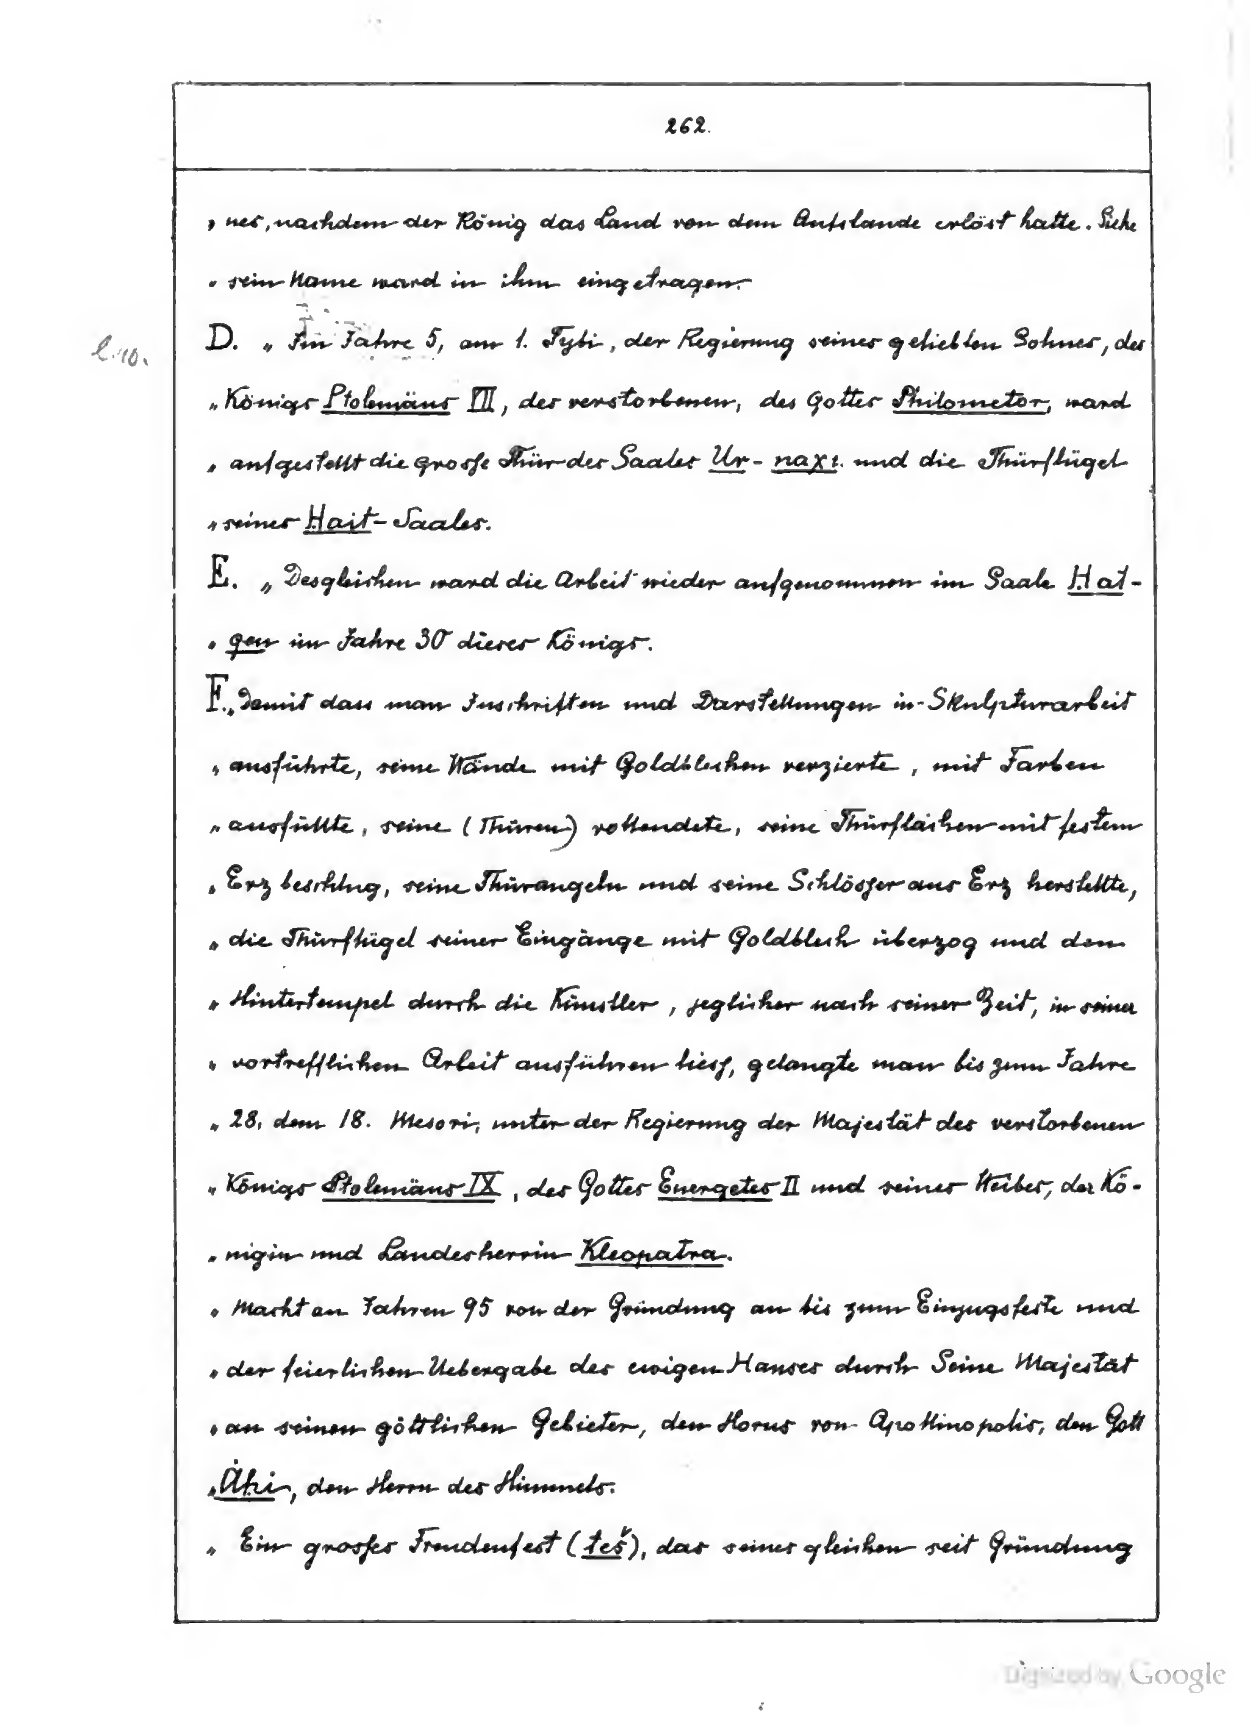 262.
„ nes, nachdem der König das Land von dem Aufstande erlöst hatte. Siehe
„ sein Name ward in ihm eingetragen.
l. 10.
D. „ Im Jahre 5, am 1. Tybi, der Regierung seines geliebten Sohnes, des
„ Königs Ptolemäus VII, des verstorbenen, des Gottes Philometor, ward
„ aufgestellt die grosse Thür des Saales Ur-naχt. und die Thürflügel
„ seines Hait-Saales.
E. „ Desgleichen ward die Arbeit wieder aufgenommen im Saale Hat-
„ qen im Jahre 30 dieses Königs.
F. „ Damit dass man Inschriften und Darstellungen in Skulpturarbeit
„ ausführte, seine Wände mit Goldblechen verzierte, mit Farben
„ ausfüllte, seine (Thüren) vollendete, seine Thürflächen mit festem
„ Erz beschlug, seine Thürangeln und seine Schlösser aus Erz herstellte,
„ die Thürflügel seiner Eingänge mit Goldblech überzog und den
„ Hintertempel durch die Künstler, jeglicher nach seiner Zeit, in seiner
„ vortrefflichen Arbeit ausführen liess, gelangte man bis zum Jahre
„ 28, dem 18. Mesori, unter der Regierung der Majestät des verstorbenen
„ Königs Ptolemäus IX, des Gottes Euergetes II und seines Weibes, der Kö-
„ nigin und Landesherrin Kleopatra.
„ Macht an Jahren 95 von der Gründung an bis zum Einzugsfeste und
„ der feierlichen Uebergabe des ewigen Hauses durch Seine Majestät
„ an seinen göttlichen Gebieter, den Horus von Apollinopolis, den Gott
„ Àhi, den Herrn des Himmels.
„ Ein grosses Freudenfest (teš), das seines gleichen seit Gründung
Digitized by Google